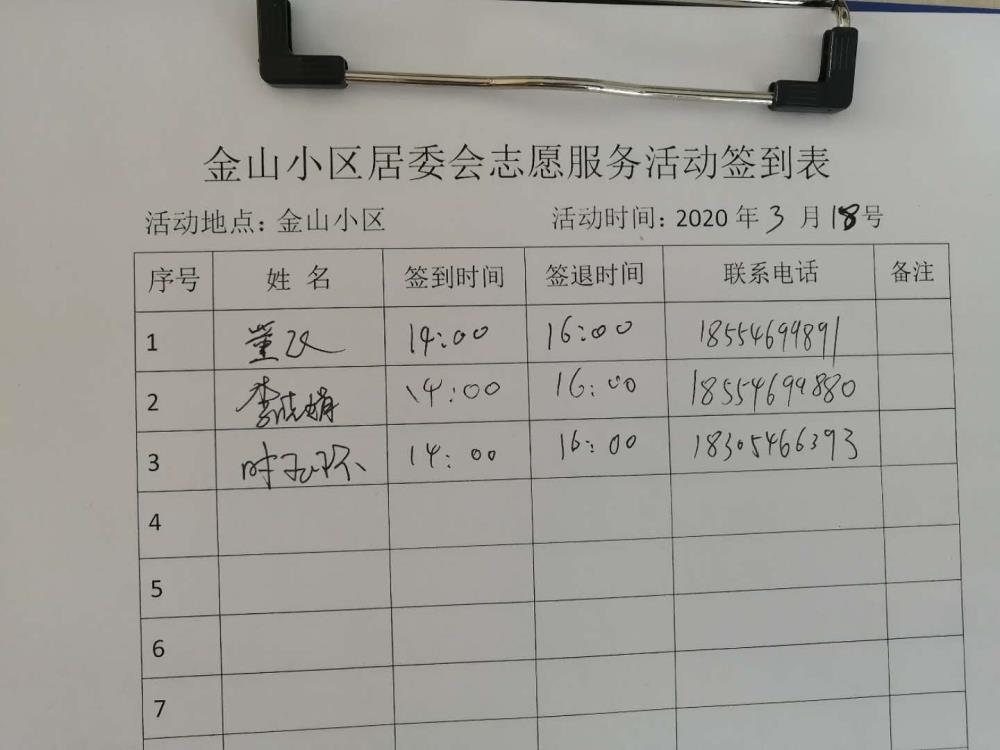 金山小区居委会志愿服务活动签到表
活动地点: 金山小区 活动时间: 2020 年 3 月 18 号
序号 姓 名 签到时间 签退时间 联系电话 备注
1 14:00 16:00 18554699891
2 李 娟 14:00 16:00 18554699880
3 时 环 14:00 16:00 18305466393
4
5
6
7